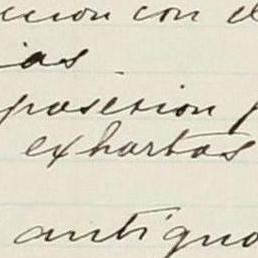 ccion con el
ias
posesion
exhortos
antiguo